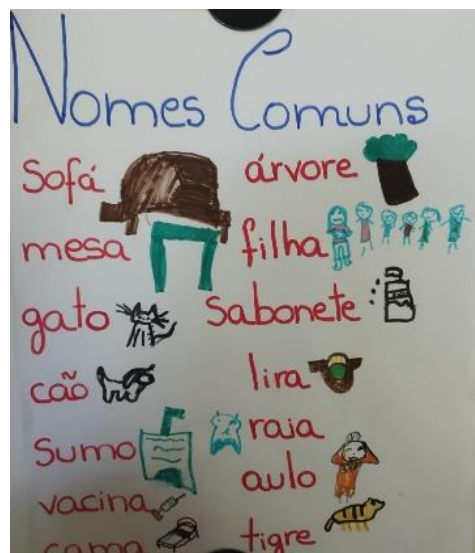 Nomes Comuns
Sofá
mesa
gato
cão
Sumo
vacina
cama
árvore
filha
Sabonete
lira
raia
aulo
tigre